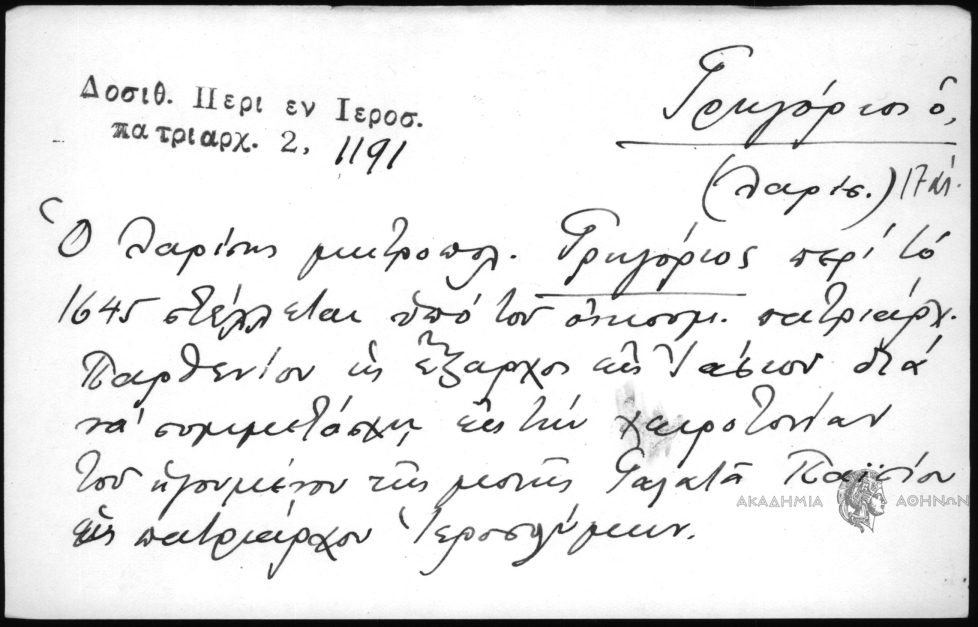 Δοσιθ. Περι εν Ιεροσ.
πατριαρχ. 2, 1191
Γρηγόριος ὁ,
(Λαρίσ.) 17 αἰ.
Ὁ Λαρίσης μητροπολ. Γρηγόριος περί τό
1645 στέλλεται ὑπό τοῦ οἰκουμ. πατριάρχ.
Παρθενίου ὡς ἔξαρχος εἰς Ἰάσιον διά
νά συμμετάσχῃ εἰς τήν χειροτονίαν
τοῦ ἡγουμένου τῆς μονῆς Γαλατᾶ Παϊσίου
εἰς πατριάρχου Ἱεροσολύμων.
ΑΚΑΔΗΜΙΑ ΑΘΗΝΩΝ